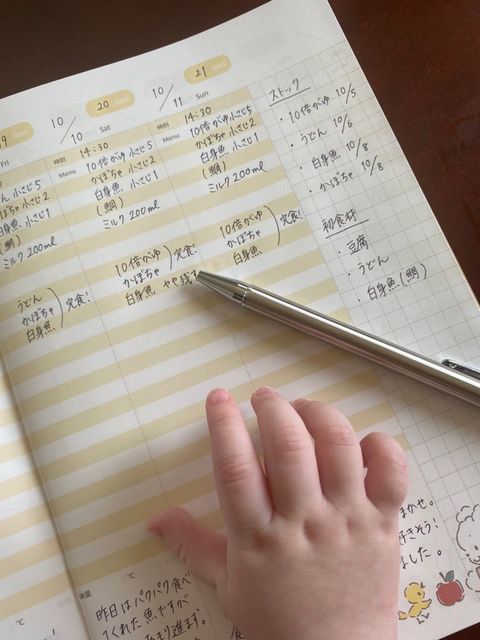 19 days
Fri
10/10
20 days
Sat
10/11
21 days
Sun
ん 小さじ5
かぼちゃ 小さじ2
白身魚 小さじ1
(鯛)
ミルク 200ml
うどん
かぼちゃ
白身魚
完食!
時刻 14:30
Menu 10倍がゆ 小さじ5
かぼちゃ 小さじ2
白身魚 小さじ1
(鯛)
ミルク 200ml
10倍がゆ
かぼちゃ
完食!
白身魚 やや残
時刻 14:30
Menu 10倍がゆ 小さじ5
かぼちゃ 小さじ2
白身魚 小さじ1
(鯛)
ミルク 200ml
10倍がゆ
かぼちゃ
白身魚
完食!
ストック
・10倍がゆ 10/5
・うどん 10/6
・白身魚 10/8
・かぼちゃ 10/8
初食材
・豆腐
・うどん
・白身魚(鯛)
体温 ℃
℃
昨日はパクパク食べ
てくれた魚ですが
進まず
まかせ。
好きそう!
ました。